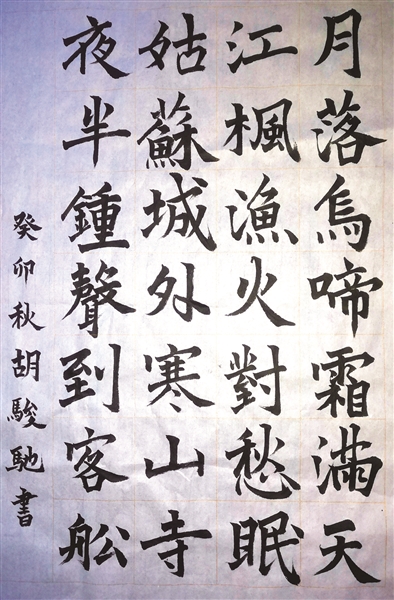 月落烏啼霜滿天
江楓漁火對愁眠
姑蘇城外寒山寺
夜半鍾聲到客舩
癸卯秋胡駿馳書